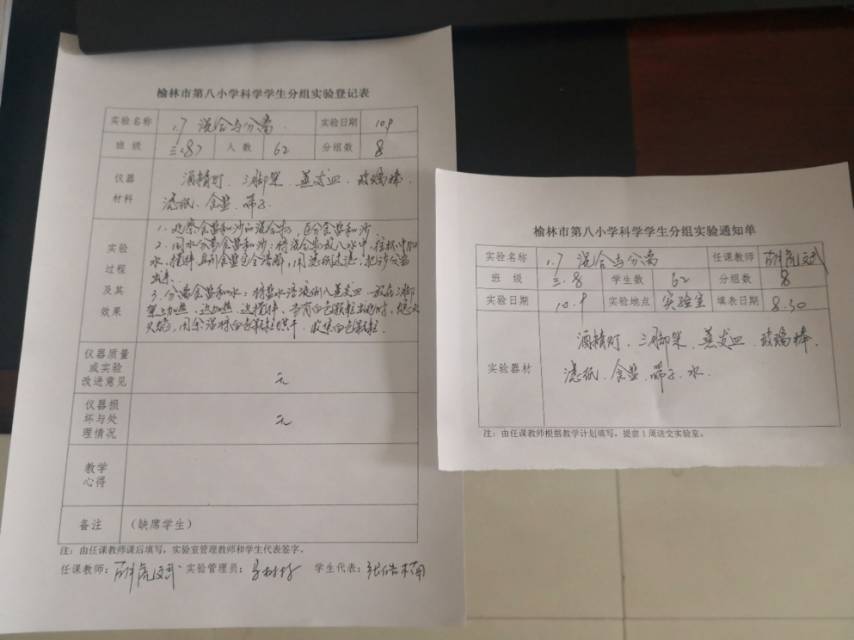 榆林市第八小学科学学生分组实验登记表
实验名称 1.7 混合与分离 实验日期 10.9
班 级 三.8 人 数 62 分组数 8
仪器材料 酒精灯、三脚架、蒸发皿、玻璃棒、
滤纸、食盐、筛子
实验过程及其效果
1、观察食盐和沙的混合物，区分食盐和沙
2、用水分离食盐和沙：将混合物放入水中，往杯中加
水，搅拌，直到食盐完全溶解，用滤纸过滤，把沙分离
出来。
3、分离食盐和水：将盐水溶液倒入蒸发皿，放在三脚
架上加热，边加热，边搅拌，当有白色颗粒出现时，熄灭
火焰，用余温将白色颗粒烘干，收集白色颗粒。
仪器质量或实验改进意见 无
仪器损坏与处理情况 无
教学心得
备注 （缺席学生）
注：由任课教师课后填写，实验室管理教师和学生代表签字。
任课教师： 实验管理员： 学生代表：
榆林市第八小学科学学生分组实验通知单
实验名称 1.7 混合与分离 任课教师
班 级 三.8 学生数 62 分组数 8
实验日期 10.9 实验地点 实验室 填表日期 8.30
实验器材 酒精灯、三脚架、蒸发皿、玻璃棒、
滤纸、食盐、筛子、水
注：由任课教师根据教学计划填写，提前1周送交实验室。